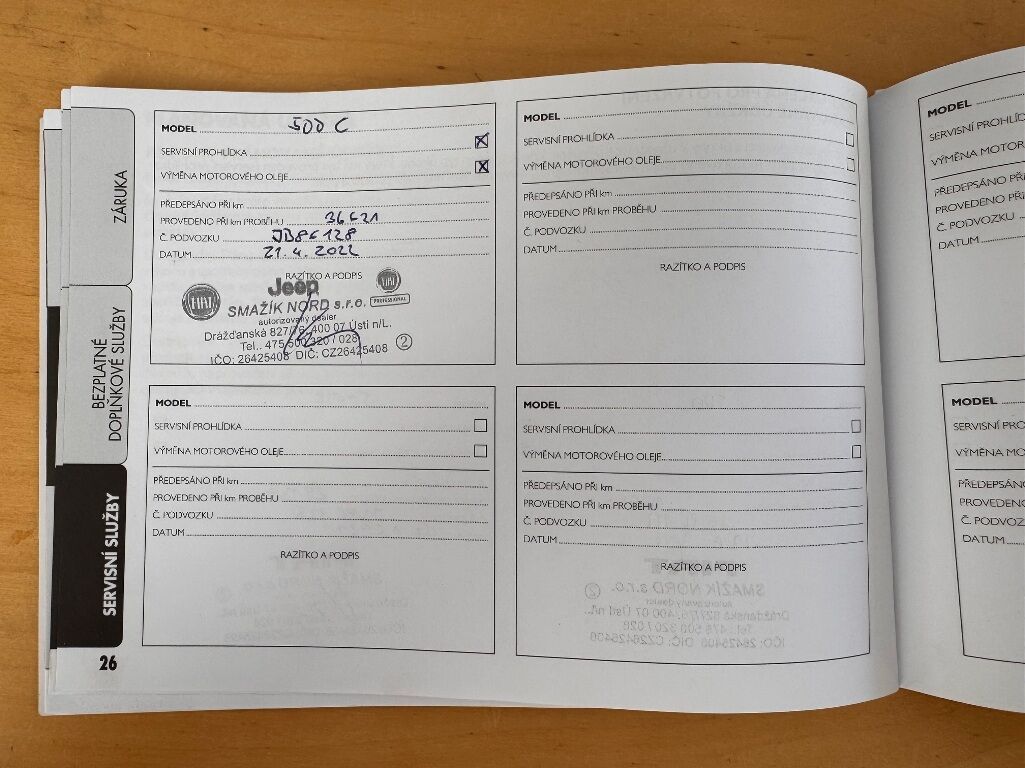 ZÁRUKA
BEZPLATNÉ
DOPLŇKOVÉ SLUŽBY
SERVISNÍ SLUŽBY
26
MODEL 500 C
SERVISNÍ PROHLÍDKA
VÝMĚNA MOTOROVÉHO OLEJE
PŘEDEPSÁNO PŘI km
PROVEDENO PŘI km PROBĚHU
Č. PODVOZKU
DATUM 21. 4. 2022
RAZÍTKO A PODPIS
Jeep
FIAT
FIAT
PROFESSIONAL
SMAŽÍK NORD s.r.o.
autorizovaný dealer
Drážďanská 827/76, 400 07 Ústí n/L.
Tel.: 475 500 320 / 028
IČO: 26425408 DIČ: CZ26425408 2
MODEL
SERVISNÍ PROHLÍDKA
VÝMĚNA MOTOROVÉHO OLEJE
PŘEDEPSÁNO PŘI km
PROVEDENO PŘI km PROBĚHU
Č. PODVOZKU
DATUM
RAZÍTKO A PODPIS
MODEL
SERVISNÍ PROHLÍDKA
VÝMĚNA MOTOROVÉHO OLEJE
PŘEDEPSÁNO PŘI km
PROVEDENO PŘI km PROBĚHU
Č. PODVOZKU
DATUM
RAZÍTKO A PODPIS
MODEL
SERVISNÍ PROHLÍDKA
VÝMĚNA MOTOROVÉHO OLEJE
PŘEDEPSÁNO PŘI km
PROVEDENO PŘI km PROBĚHU
Č. PODVOZKU
DATUM
RAZÍTKO A PODPIS
MODEL
SERVISNÍ PROHLÍD
VÝMĚNA MOTOR
PŘEDEPSÁNO PŘI k
PROVEDENO PŘI k
Č. PODVOZKU
DATUM
MODEL
SERVISNÍ PRO
VÝMĚNA MO
PŘEDEPSÁN
PROVEDENO
Č. PODVOZ
DATUM